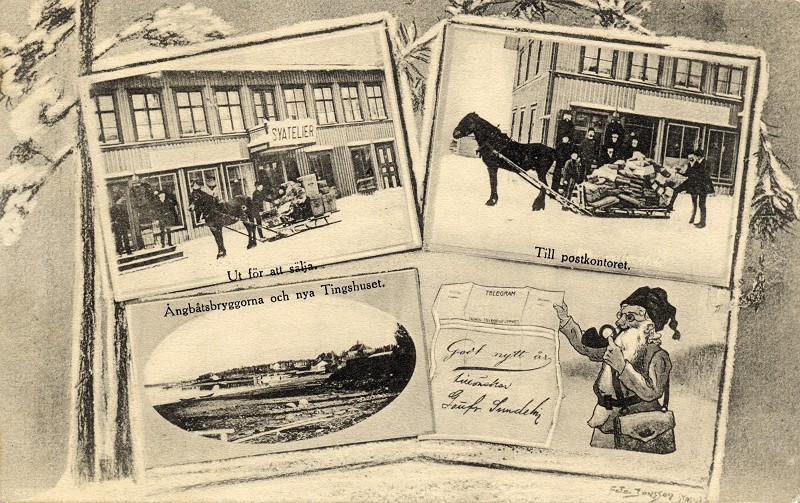 SYATELIER
Ut för att sälja.
Till postkontoret.
Ångbåtsbryggorna och nya Tingshuset.
TELEGRAM
Godt nytt år,
tillönskar